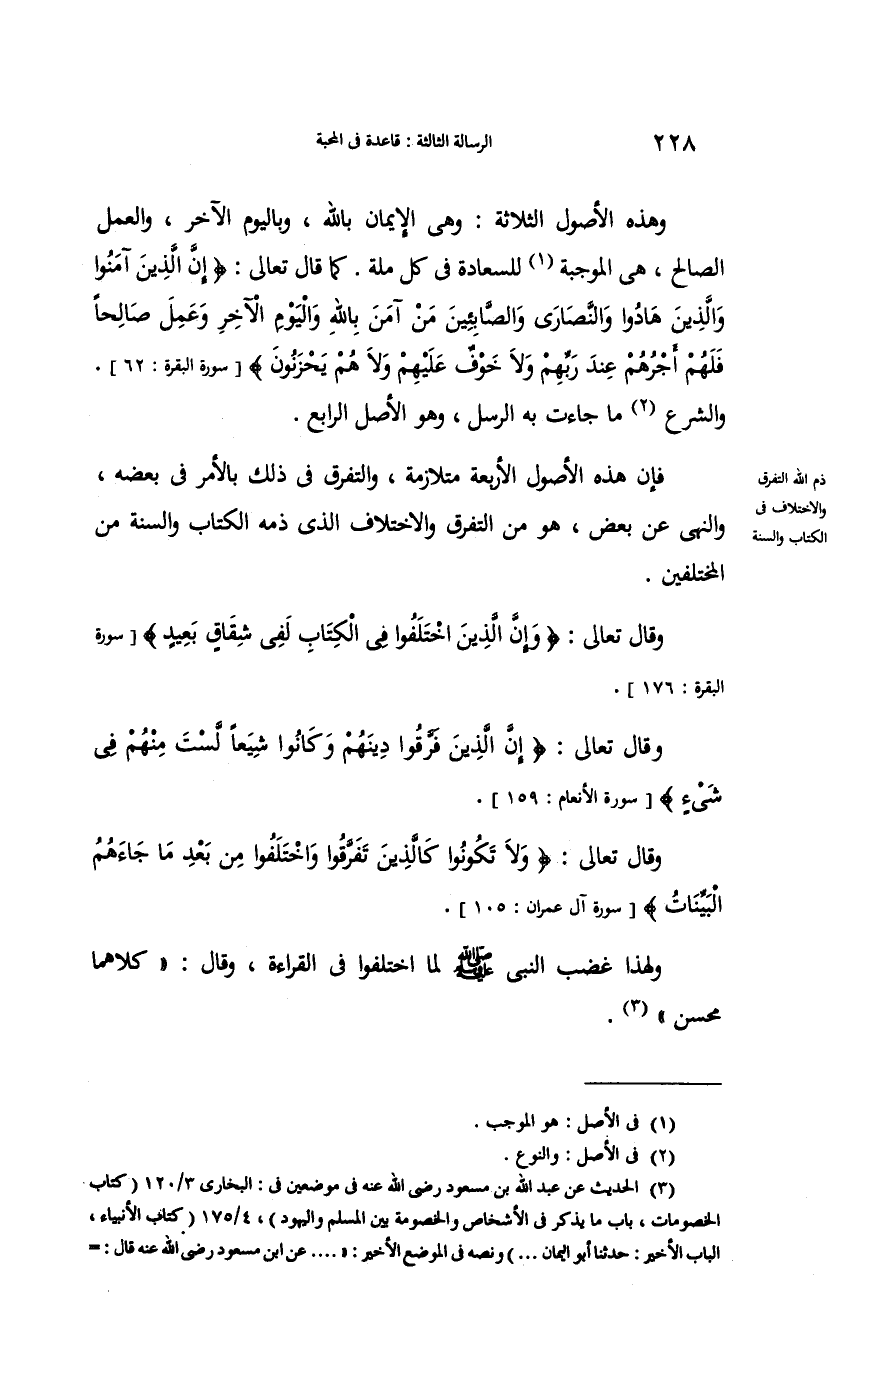 ٢٢٨ الرسالة الثالثة : قاعدة فى المحبة
وهذه الأصول الثلاثة : وهى الإيمان بالله ، وباليوم الآخر ، والعمل
الصالح ، هى الموجبة (١) للسعادة فى كل ملة . كما قال تعالى : ﴿ إِنَّ الَّذِينَ آمَنُوا
وَالَّذِينَ هَادُوا وَالنَّصَارَى وَالصَّابِئِينَ مَنْ آمَنَ بِاللهِ وَالْيَوْمِ الْآخِرِ وَعَمِلَ صَالِحاً
فَلَهُمْ أَجْرُهُمْ عِندَ رَبِّهِمْ وَلاَ خَوْفٌ عَلَيْهِمْ وَلاَ هُمْ يَحْزَنُونَ ﴾ [ سورة البقرة : ٦٢ ] .
والشرع (٢) ما جاءت به الرسل ، وهو الأصل الرابع .
فإن هذه الأصول الأربعة متلازمة ، والتفرق فى ذلك بالأمر فى بعضه ،
والنهى عن بعض ، هو من التفرق والاختلاف الذى ذمه الكتاب والسنة من
المختلفين .
ذم الله التفرق
والاختلاف فى
الكتاب والسنة
وقال تعالى : ﴿ وَإِنَّ الَّذِينَ اخْتَلَفُوا فِى الْكِتَابِ لَفِى شِقَاقٍ بَعِيدٍ ﴾ [ سورة
البقرة : ١٧٦ ] .
وقال تعالى : ﴿ إِنَّ الَّذِينَ فَرَّقُوا دِينَهُمْ وَكَانُوا شِيَعاً لَّسْتَ مِنْهُمْ فِى
شَىْءٍ ﴾ [ سورة الأنعام : ١٥٩ ] .
وقال تعالى : ﴿ وَلاَ تَكُونُوا كَالَّذِينَ تَفَرَّقُوا وَاخْتَلَفُوا مِن بَعْدِ مَا جَاءَهُمُ
الْبَيِّنَاتُ ﴾ [ سورة آل عمران : ١٠٥ ] .
ولهذا غضب النبى ﷺ لما اختلفوا فى القراءة ، وقال : « كلاهما
محسن » (٣) .
(١) فى الأصل : هو الموجب .
(٢) فى الأصل : والنوع .
(٣) الحديث عن عبد الله بن مسعود رضى الله عنه فى موضعين فى : البخارى ١٢٠/٣ ( كتاب
الخصومات ، باب ما يذكر فى الأشخاص والخصومة بين المسلم واليهود ) ، ١٧٥/٤ ( كتاب الأنبياء ،
الباب الأخير : حدثنا أبو اليمان ... ) ونصه فى الموضع الأخير : « .... عن ابن مسعود رضى الله عنه قال : =